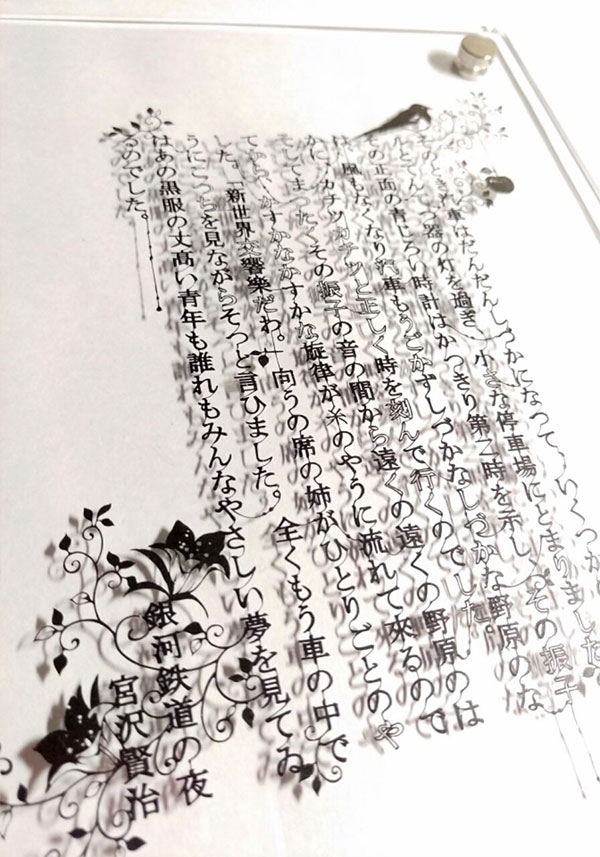 そのとき汽車はだんだんしづかになって、いくつか
ルとてんてつ器の灯を過ぎ、小さな停車場にとまりました
その正面の青じろい時計はかつきり第二時を示し、その振子
は、風もなくなり汽車もうごかずしづかなしづかな野原のな
かに、カチッカチッと正しく時を刻んで行くのでした。
そしてまつたくその振子の音の間から遠くの遠くの野原のは
てから、かすかなかすかな旋律が糸のやうに流れて來るので
した。「新世界交響樂だわ。」向うの席の姉がひとりごとのや
うにこつちを見ながらそつと言ひました。全くもう車の中で
はあの黒服の丈髙い青年も誰れもみんなやさしい夢を見てゐ
るのでした。
銀河鉄道の夜
宮沢賢治